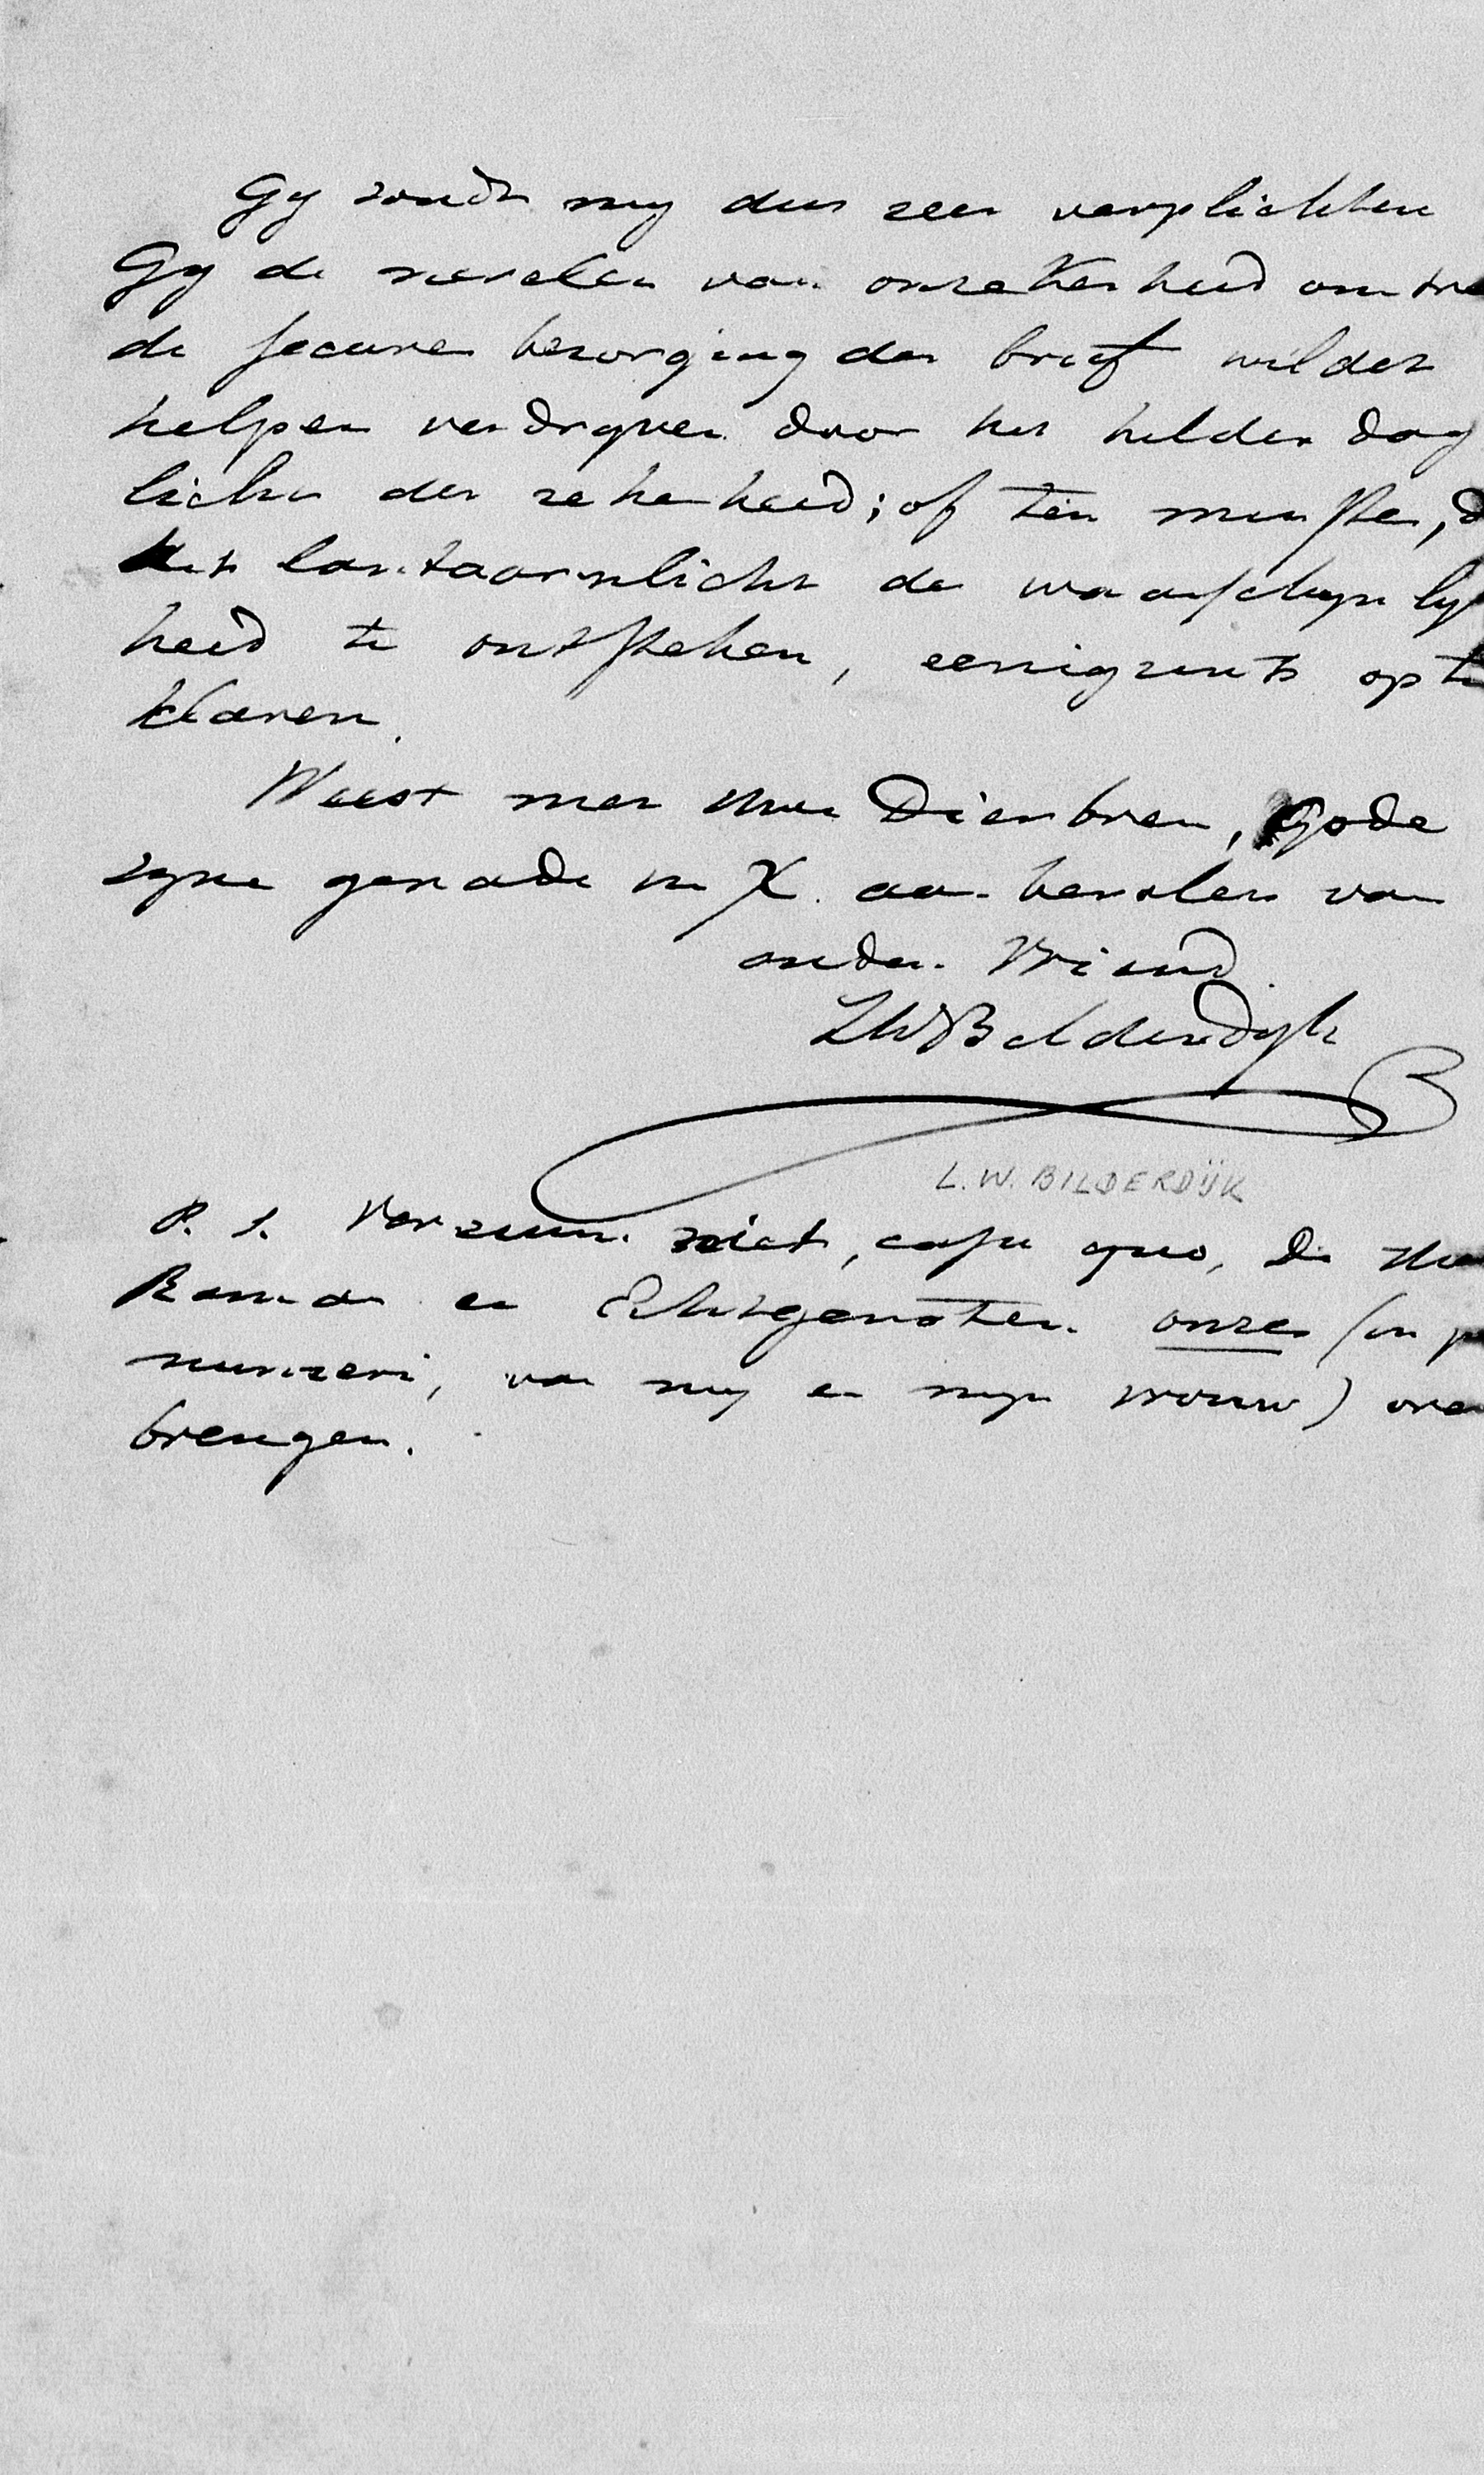 Gy zoudt my dus zeer verplichten
Gy de nevelen van onzekerheid omtre
de secure bezorging der brief wildet
helpen verdryven door het helder dag
licht der zekerheid; of ten minste, d
het lantaarnlicht der waarschynlyk
heid te ontsteken, eenigzints op te
klaren.
Weest met Uwe Dierbren, Gode
zyne genade in X. aanbevolen van
ouden Vriend
LWBilderdyk
L. W. BILDERDIJK
P. S. Verzuim niet, casu quo, de
en Echtgenoten onze (in
numeri, van my en myn vrouw) over
brengen.